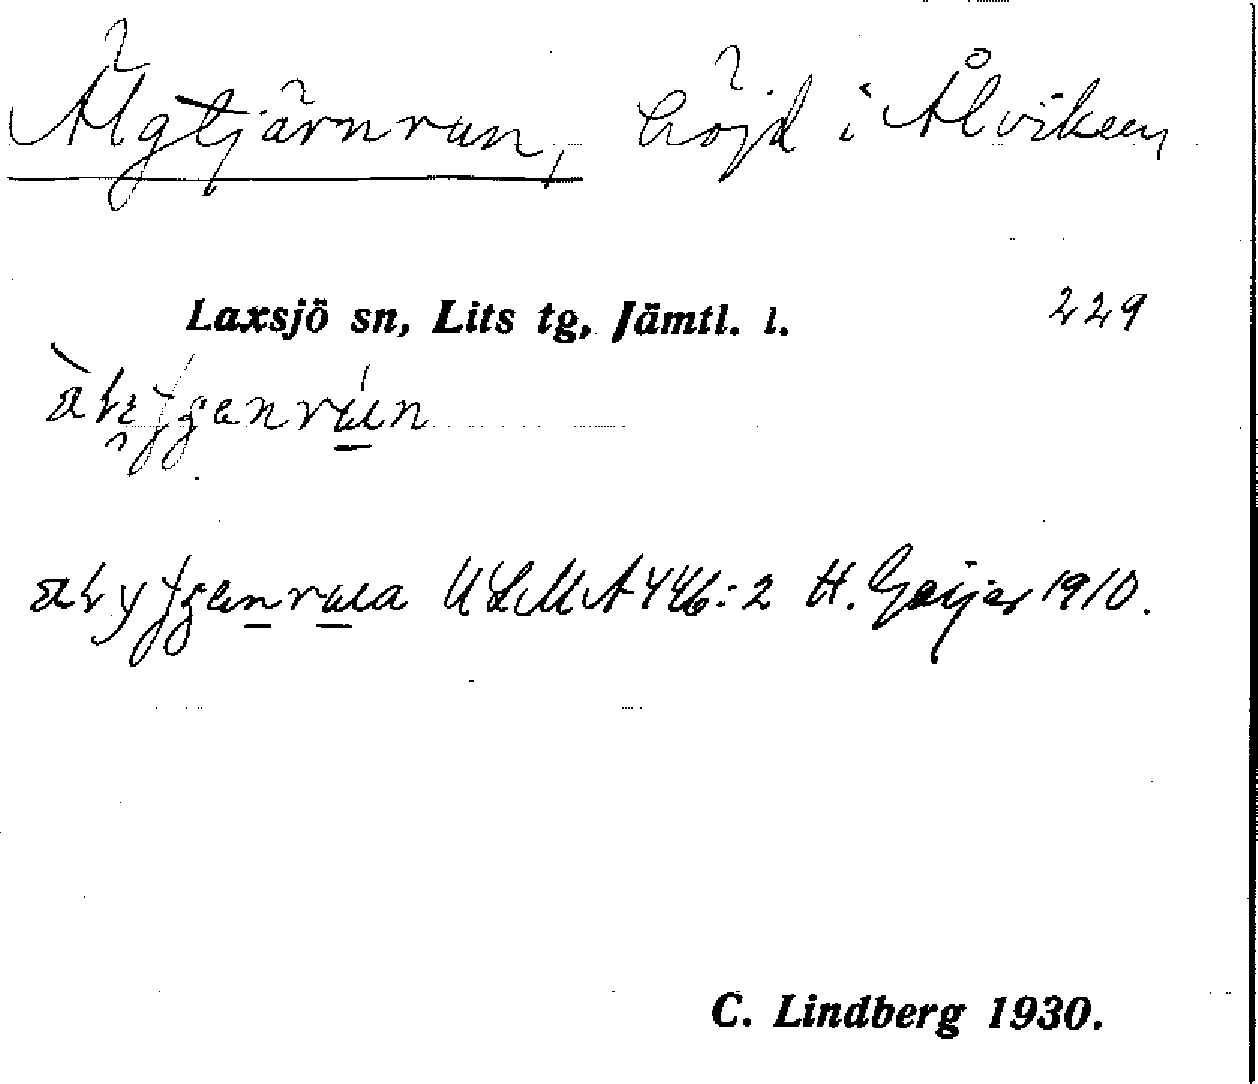 Älgtjärnrun, höjd i Ålviken,
Laxsjö sn, Lits tg, Jämtl. l. 229
ULMA 446:2 H. Geijer 1910.
C. Lindberg 1930.